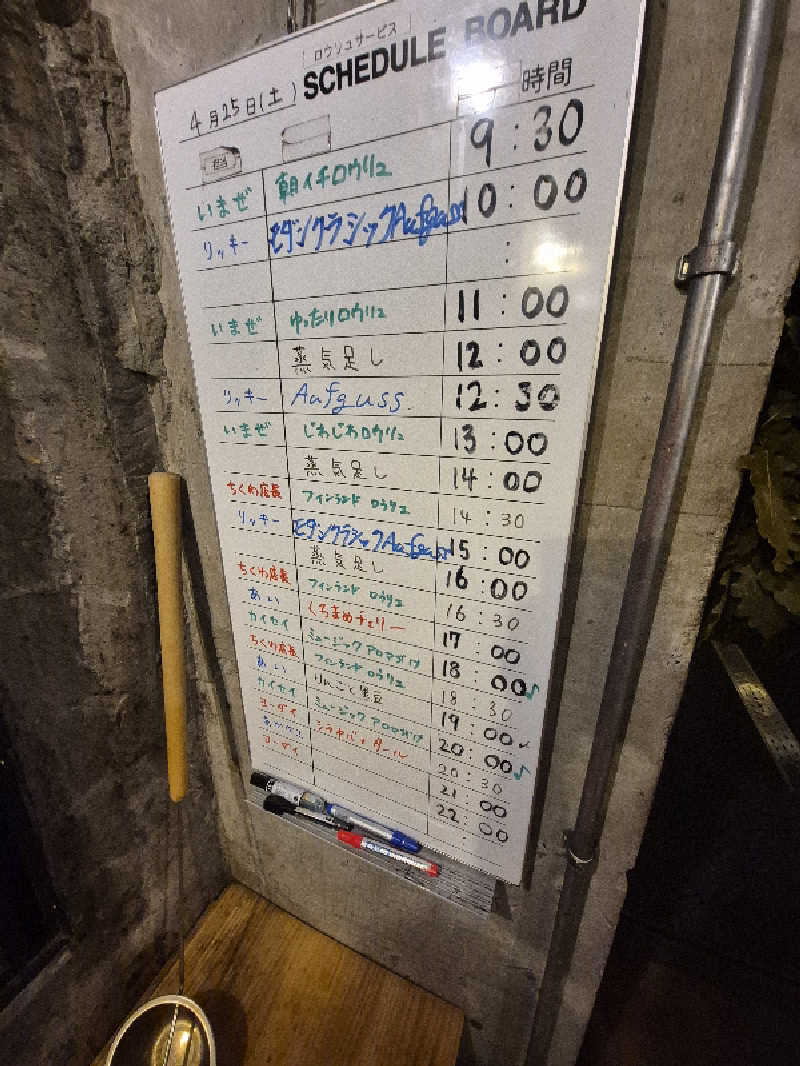 ロウリュサービス
SCHEDULE BOARD
4月25日(土)
時間
いまぜ 朝イチロウリュ 9:30
リッキー モダンクラシックAufguss 10:00
:
いまぜ ゆったりロウリュ 11:00
蒸気足し 12:00
リッキー Aufguss. 12:30
いまぜ じわじわロウリュ 13:00
蒸気足し 14:00
ちくわ店長 フィンランド ロウリュ 14:30
リッキー モダンクラシックAufguss 15:00
蒸気足し 16:00
ちくわ店長 フィンランド ロウリュ 16:30
あい くろまめチェリー 17:00
カイセイ ミュージック アロマ 18:00♪
ちくわ店長 フィンランド ロウリュ 18:30
あい りんごと黒豆 19:00
カイセイ ミュージック アロマ 20:00♪
ヨーダイ 20:30
21:00
ヨーダイ 22:00